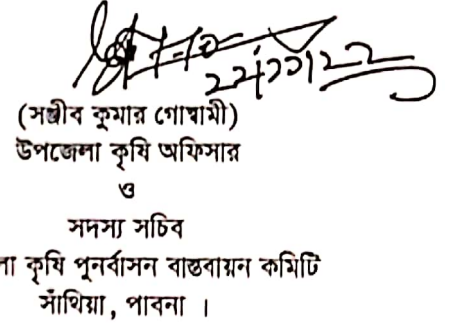 ২২/১১/২২
(সঞ্জীব কুমার গোস্বামী)
উপজেলা কৃষি অফিসার
ও
সদস্য সচিব
কৃষি পুনর্বাসন বাস্তবায়ন কমিটি
সাঁথিয়া, পাবনা ।